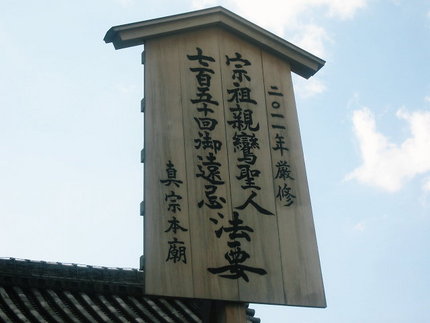 二〇一一年厳修
宗祖親鸞聖人
七百五十回御遠忌
法要
真宗本廟